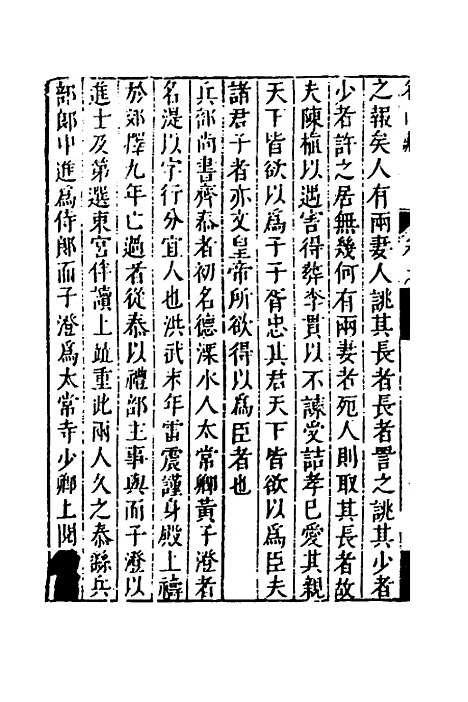 之報矣人有兩妻人誂其長者長者詈之誂其少者
少者許之居無幾何有兩妻者死人則取其長者故
夫陳植以遇害得葬李貫以不諫受詰孝己愛其親
天下皆欲以爲子子胥忠其君天下皆欲以爲臣夫
諸君子者亦文皇帝所欲得以爲臣者也
兵部尚書齊泰者初名德溧水人太常卿黃子澄者
名湜以字行分宜人也洪武末年雷震謹身殿上禱
於郊擇九年亡過者從泰以禮部主事與而子澄以
進士及第選東宮伴讀上並重此兩人久之泰繇兵
部郎中進爲侍郎而子澄爲太常寺少卿上閱